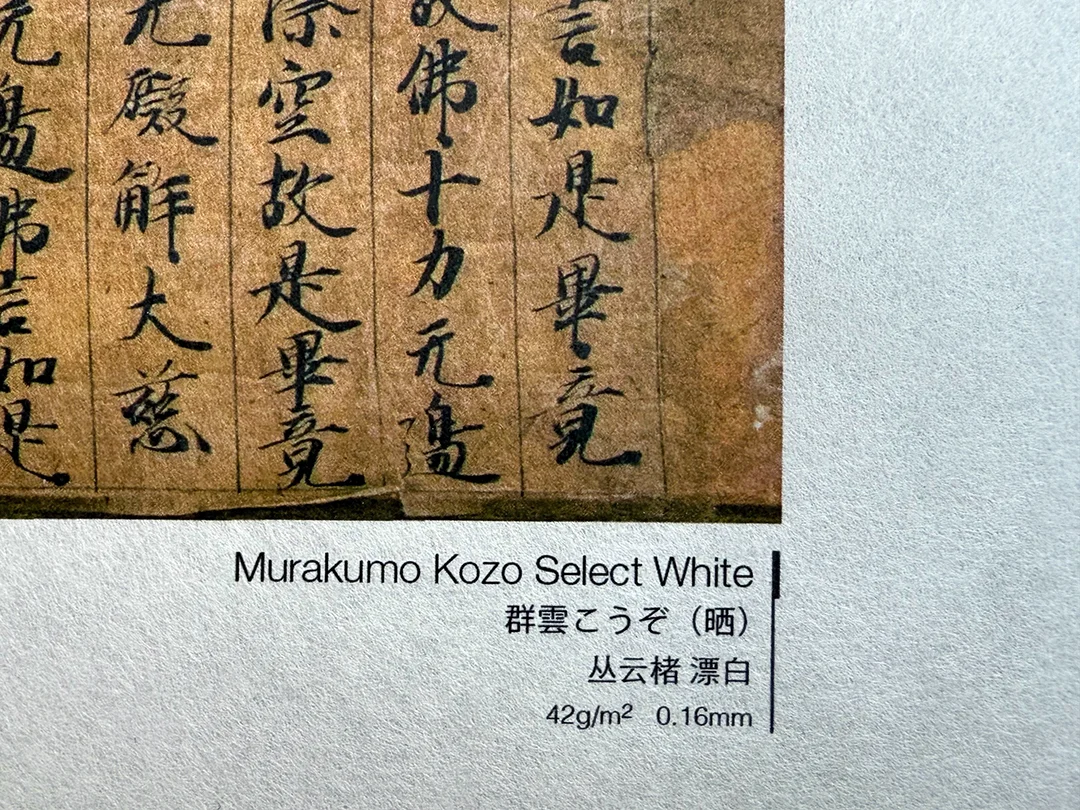 言如是畢竟
故佛十力无邊
空故是畢竟
无礙解大慈
无邊佛言如是
Murakumo Kozo Select White
群雲こうぞ（晒）
丛云楮 漂白
42g/m² 0.16mm